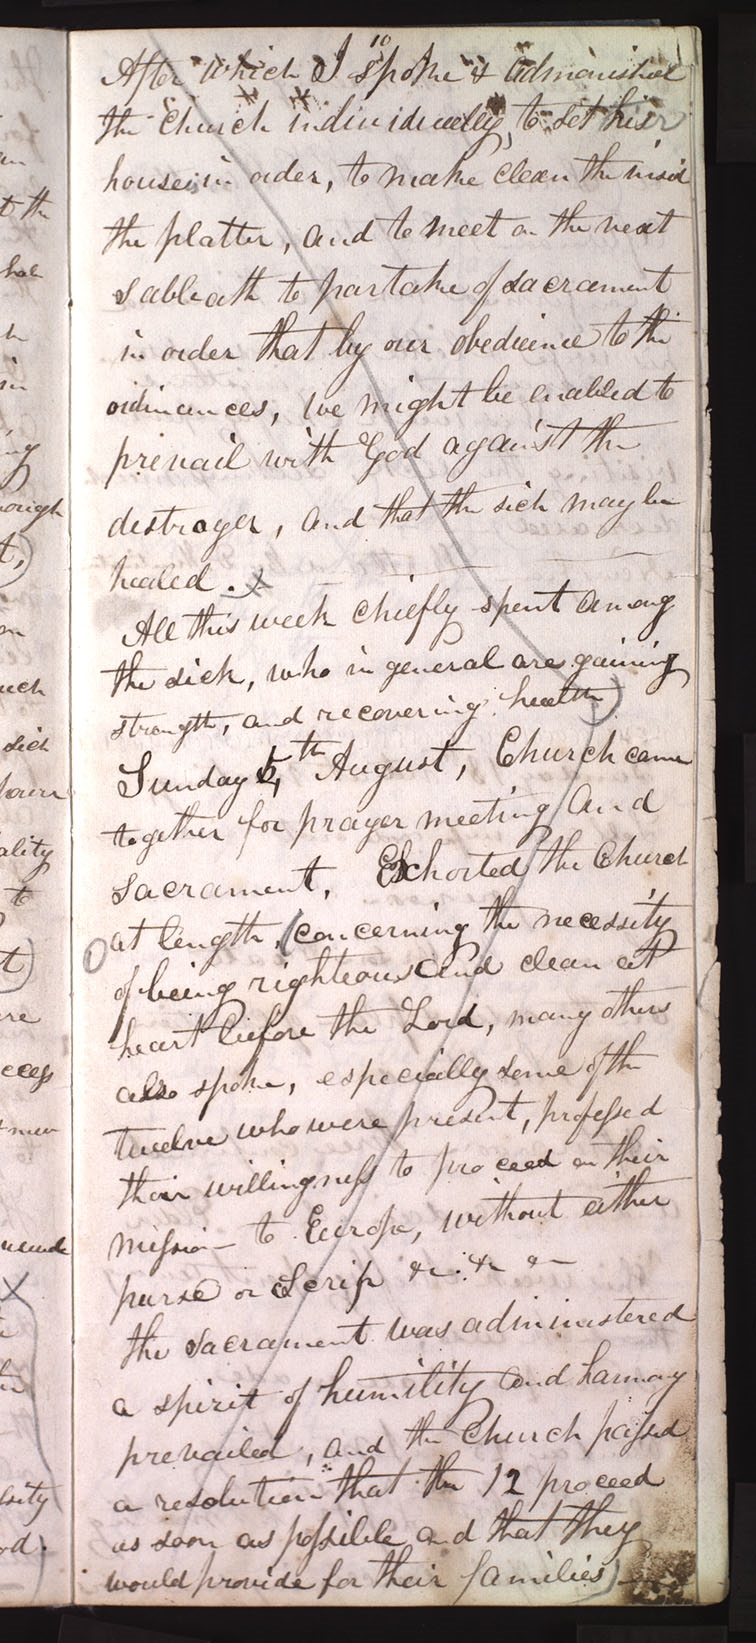 10
After which I spoke & admonished
the Church individually, to set his
house in order, to make clean the inside
the platter, and to meet on the next
Sabbath to partake of sacrament
in order that by our obedience to the
ordinances, we might be enabled to
prevail with God against the
destroyer, and that the sick may be
healed.
All this week chiefly spent among
the sick, who in general are gaining
strength, and recovering health)
Sunday 5,th August, Church came
together for prayer meeting and
sacrament, Exhorted the Church
at length, (concerning the necessity
of being righteous and clean at
heart before the Lord, many others
also spoke, especially some of the
twelve who were present, professed
their willingness to proceed on their
mission to Europe, without either
purse or Scrip &c. &c &c
the sacrament was administered
a spirit of humility and harmony
prevailed, and the Church passed
a resolution that the 12 proceed
as soon as possible and that they
would provide for their families)